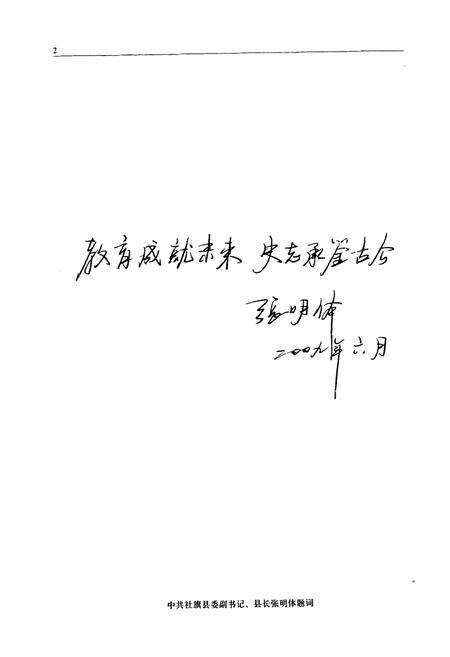 2
教育成就未来 史志承鉴古今
张明体
二〇〇九年六月
中共社旗县委副书记、县长张明体题词